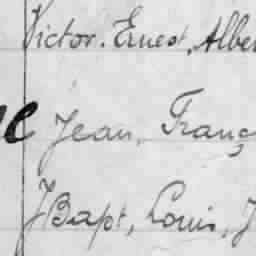 Victor. Ernest, Albe
Jean, Franç
JBapt, Louis, J